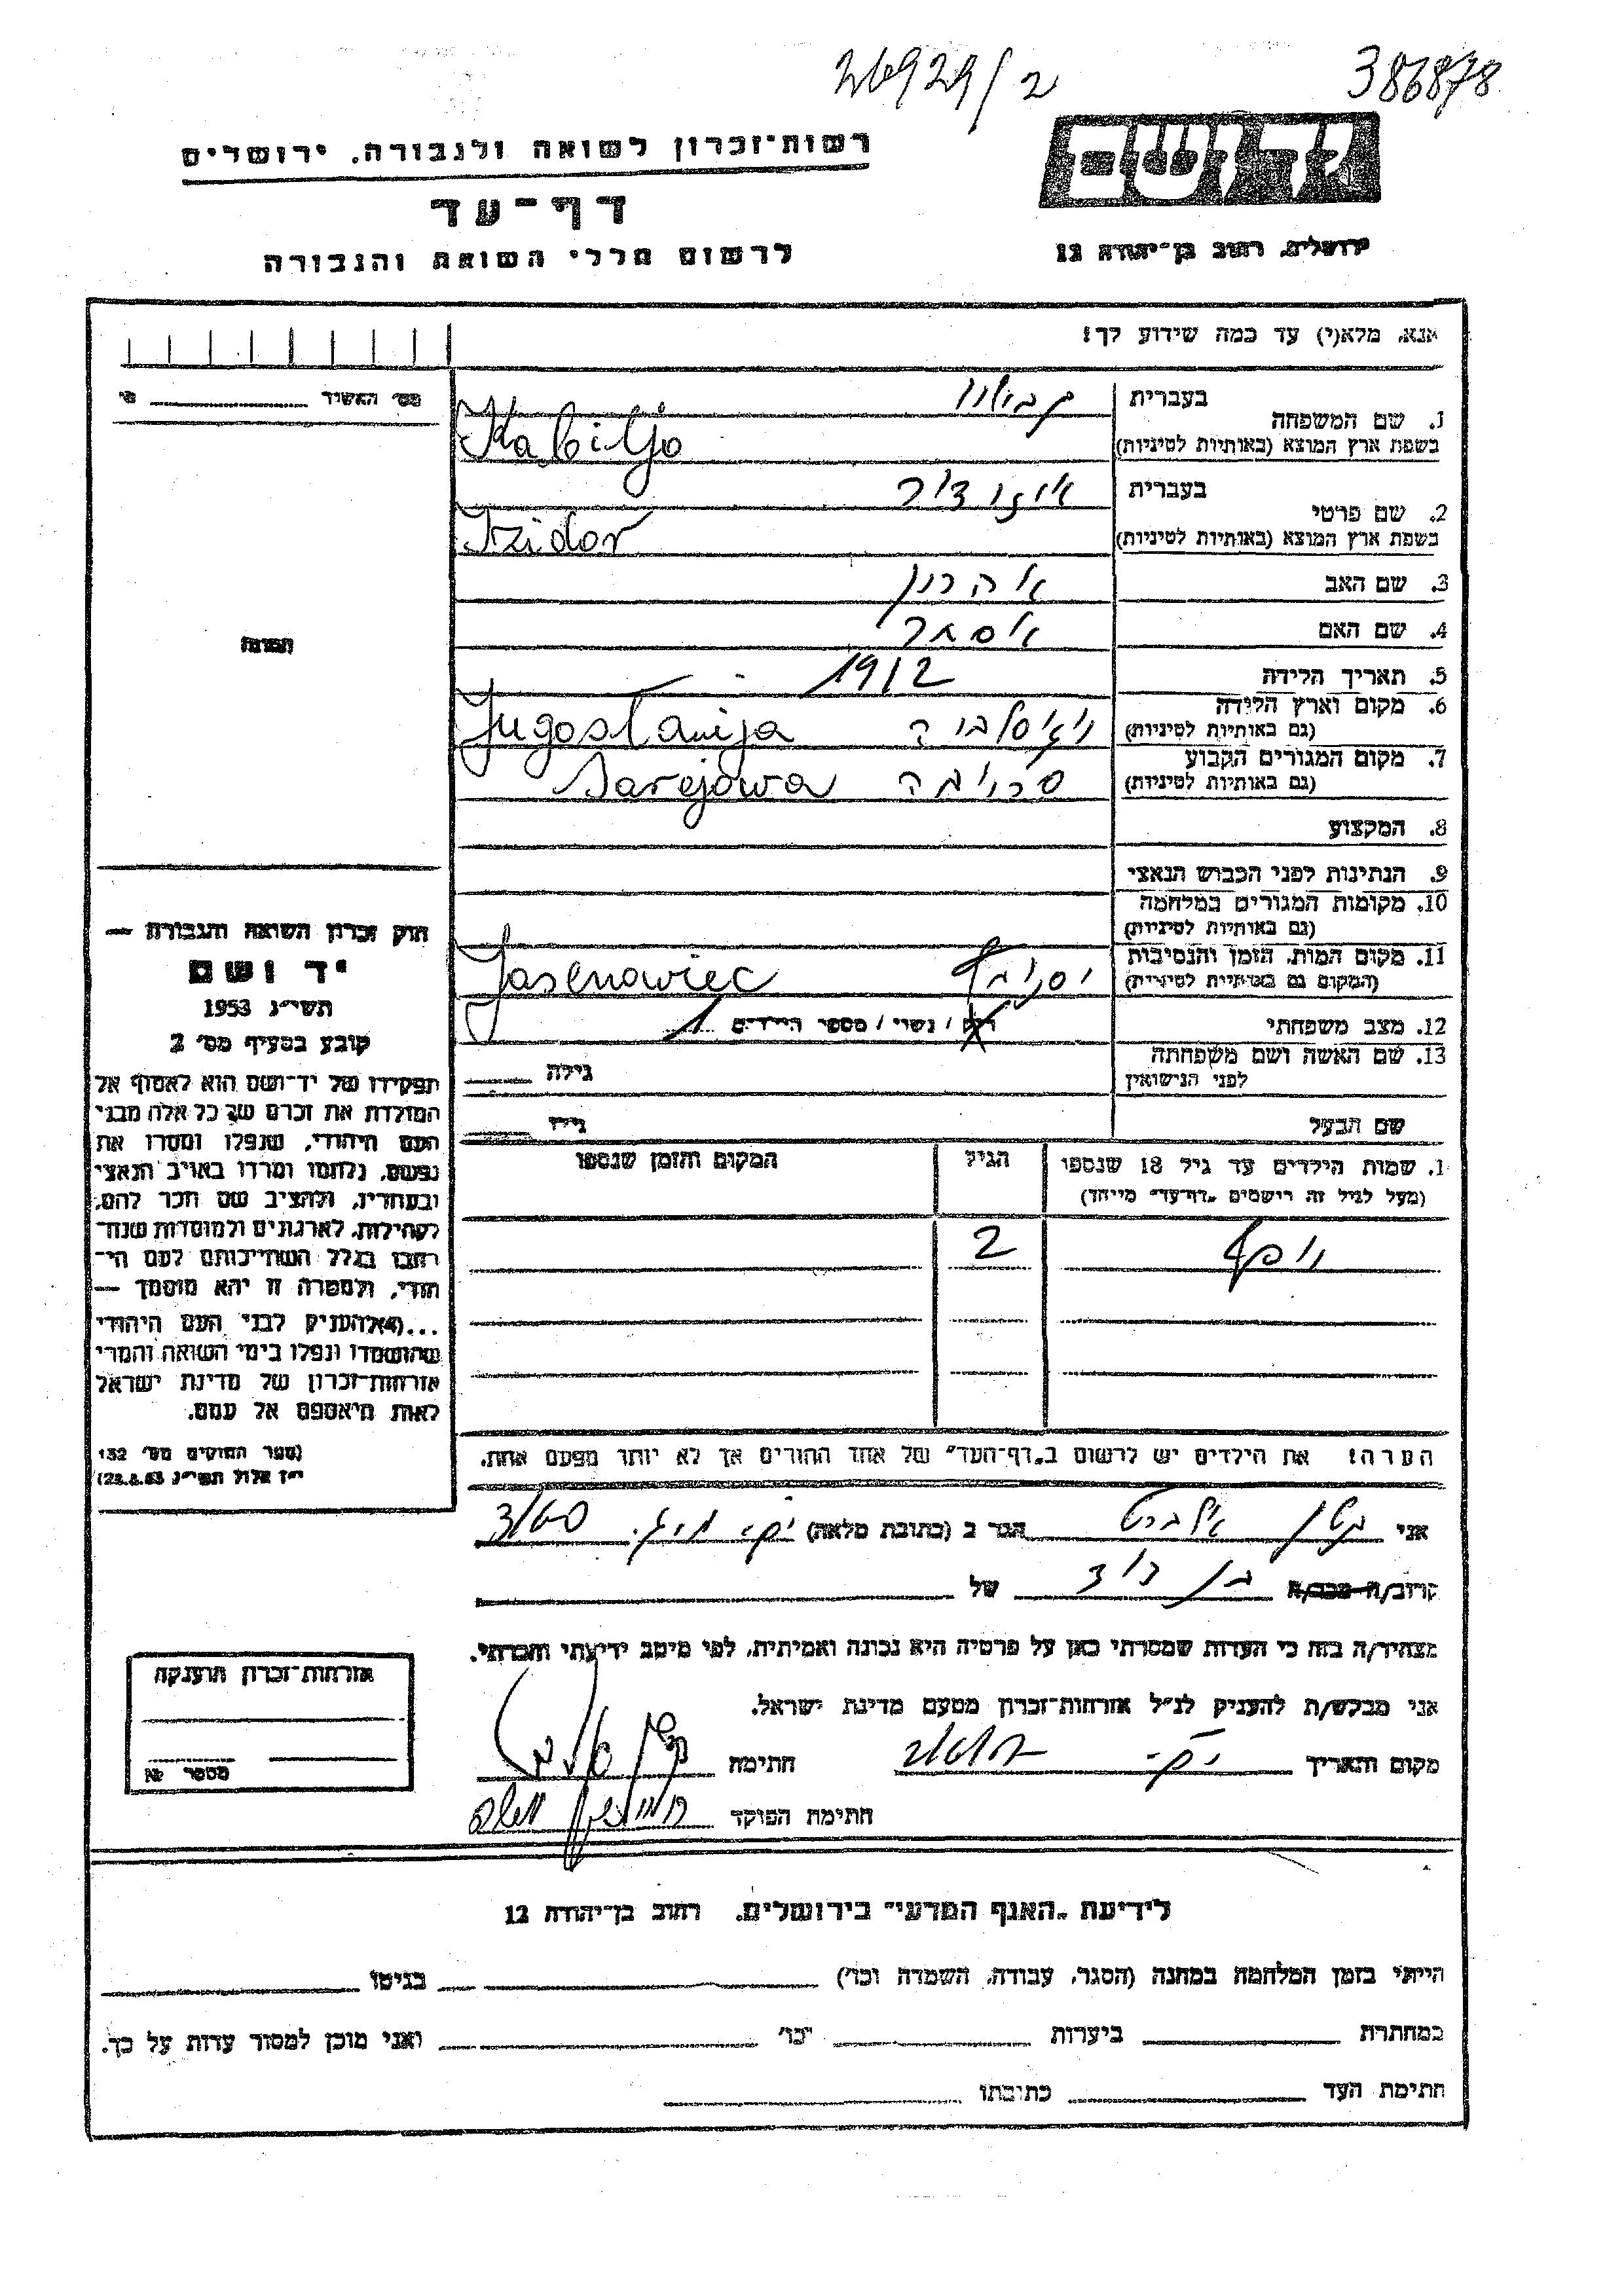 26929/2
386878
רשות־זכרון לשואה ולגבורה, ירושלים
דף־עד
לרשום חללי השואה והגבורה
יד ושם
ירושלים, רחוב בן־יהודה 12
אנא, מלא(י) עד כמה שידוע לך!
מס' האשיד
1. שם המשפחה
בעברית
קבילו
בשפת ארץ המוצא (באותיות לטיניות)
Kabiljo
2. שם פרטי
בעברית
איזידור
בשפת ארץ המוצא (באותיות לטיניות)
Izidor
3. שם האב אהרון
4. שם האם אסתר
5. תאריך הלידה 1912
6. מקום וארץ הלידה
(גם באותיות לטיניות)
Jugoslavija
7. מקום המגורים הקבוע
(גם באותיות לטיניות)
Sarejowa
8. המקצוע
9. הנתינות לפני הכבוש הנאצי
10. מקומות המגורים במלחמה
(גם באותיות לטיניות)
11. מקום המות, הזמן והנסיבות
(המקום גם באותיות לטיניות)
Jasenowiec
12. מצב משפחתי
רווק / נשוי / מספר הילדים 1
13. שם האשה ושם משפחתה
לפני הנישואין
גילה
שם הבעל
גילו
1. שמות הילדים עד גיל 18 שנספו
(מעל לגיל זה רישמים "דף־עד" מיוחד)
הגיל
המקום והזמן שנספו
2
הערה! את הילדים יש לרשום ב"דף־העד" של אחד ההורים אך לא יותר מפעם אחת.
תמונה
חוק זכרון השואה והגבורה —
יד ושם
תשי״ג 1953
קובע בסעיף מס' 2
תפקידו של יד־ושם הוא לאסוף אל
המולדת את זכרם של כל אלה מבני
העם היהודי, שנפלו ומסרו את
נפשם, נלחמו ומרדו באויב הנאצי
ובעוזריו, ולהציב שם וזכר להם,
לקהילות, לארגונים ולמוסדות שנח־
רבו בגלל השתייכותם לעם הי־
הודי, ולמטרה זו יהא מוסמך —
...(4) להעניק לבני העם היהודי
שהושמדו ונפלו בימי השואה והמרי
אזרחות־זכרון של מדינת ישראל
לאות היאספם אל עמם.
(ספר החוקים מס' 132
י״ז אלול תשי״ג 28.8.53)
אני אלברט הגר ב (כתובת מלאה)
קרוב/ה מכר/ה בן דוד של
מצהיר/ה בזה כי העדות שמסרתי כאן על פרטיה היא נכונה ואמיתית, לפי מיטב ידיעתי והכרתי.
אני מבקש/ת להעניק לנ״ל אזרחות־זכרון מטעם מדינת ישראל.
מקום ותאריך
חתימה
חתימת הפוקד
אזרחות־זכרון הוענקה
מספר
לידיעת "האגף המדעי" בירושלים, רחוב בן־יהודה 12
הייתי בזמן המלחמה במחנה (הסגר, עבודה, השמדה וכו') בגיטו
במחתרת ביערות וכו' ואני מוכן למסור עדות על כך.
חתימת העד כתובתו